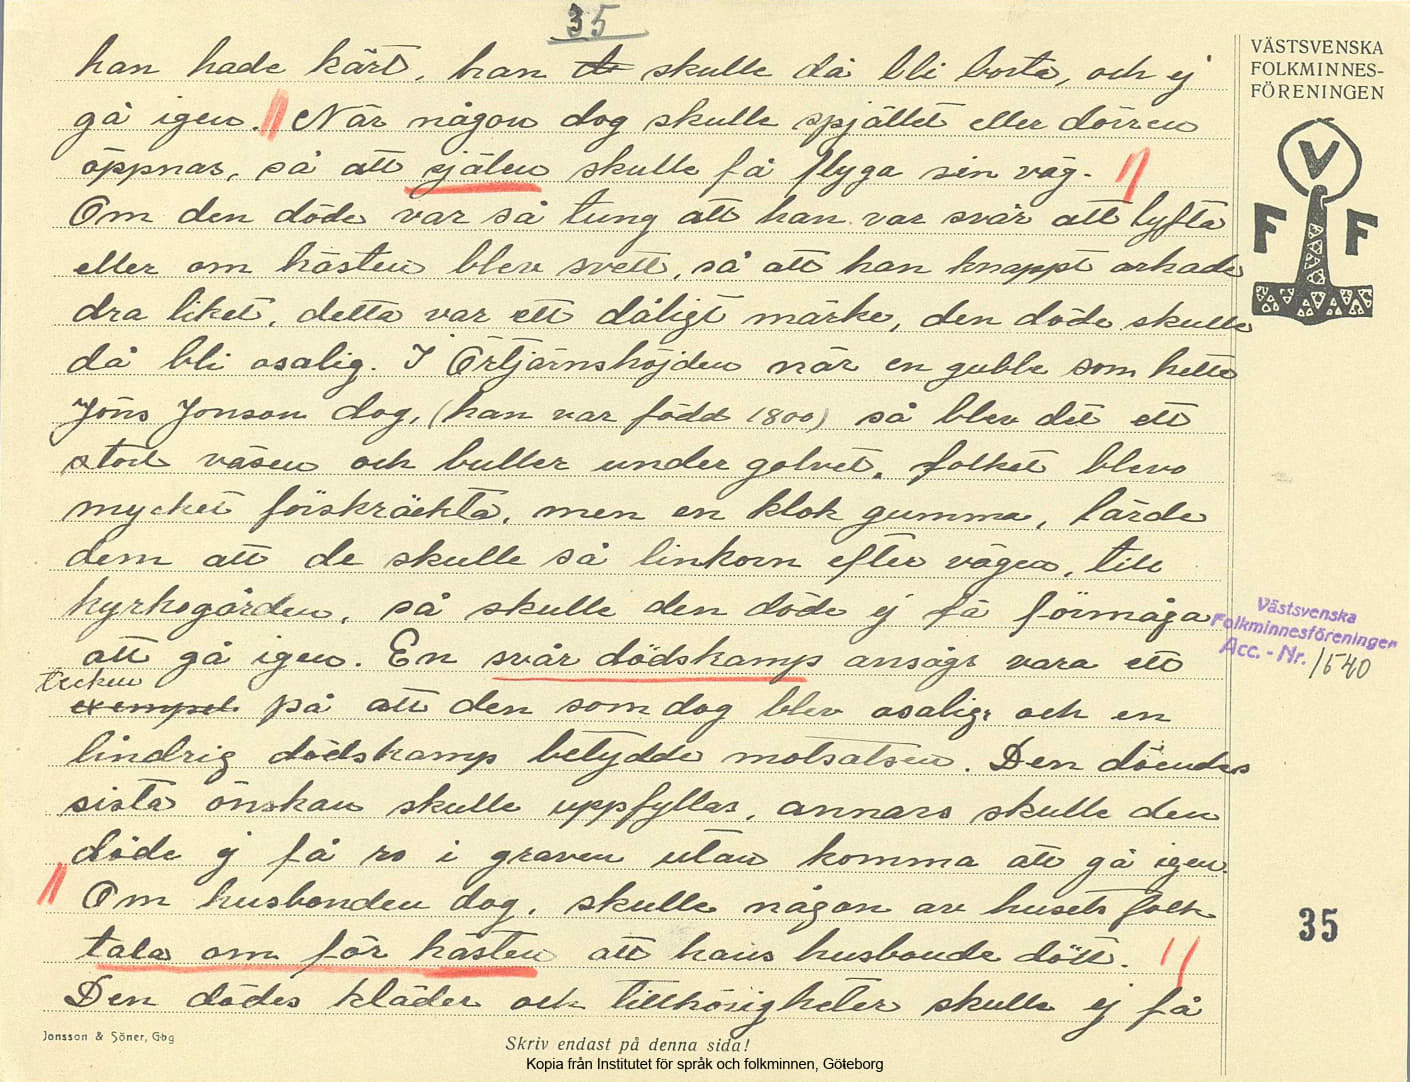 35
han hade kärt, han skulle då bli borta, och ej
gå igen. När någon dog skulle spjället eller dörren
öppnas, så att själen skulle få flyga sin väg.
Om den döde var så tung att han var svår att lyfta
eller om hästen blev svett, så att han knappt orkade
dra liket, detta var ett dåligt märke, den döde skulle
då bli osalig. I Örtjärnshöjden när en gubbe som hette
Jöns Jonson dog, (han var född 1800) så blev det ett
stort väsen och buller under golvet, folket blevo
mycket förskräckta, men en klok gumma, lärde
dem att de skulle så linkorn efter vägen, till
kyrkogården, så skulle den döde ej få förmåga
att gå igen. En svår dödskamp ansågs vara ett
tecken
exempel på att den som dog blev osalig, och en
lindrig dödskamp betydde motsatsen. Den döendes
sista önskan skulle uppfyllas, annars skulle den
döde ej få ro i graven utan komma att gå igen.
Om husbonden dog, skulle någon av husets folk
tala om för hästen att hans husbonde dött.
Den dödes kläder och tillhörigheter skulle ej få
VÄSTSVENSKA
FOLKMINNES-
FÖRENINGEN
V
F F
Västsvenska
Folkminnesföreningen
Acc. - Nr. 1540
35
Jonsson & Söner, Gbg
Skriv endast på denna sida!
Kopia från Institutet för språk och folkminnen, Göteborg